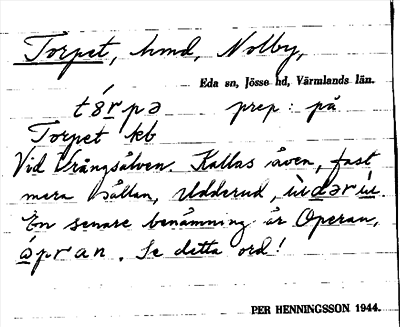 Torpet, hmd, Nolby,
Eda sn, Jösse hd, Värmlands län.
tórpə prep: på
Torpet kb
Vid Vrångsälven. Kallas även, fast
mera sällan, Udderud, ùdərú.
En senare benämning är Operan,
ópran. Se detta ord!
PER HENNINGSSON 1944.